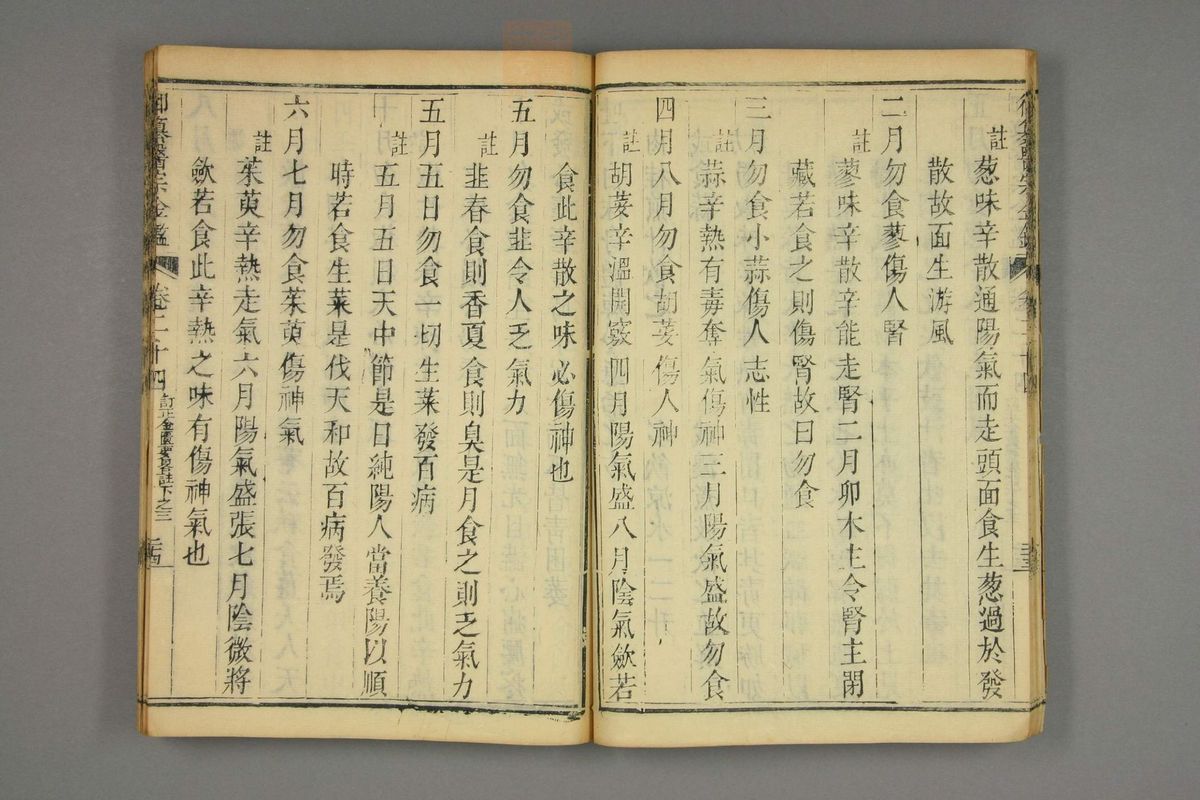 註葱味辛散通陽氣而走頭面食生葱過於發
散故面生游風
二月勿食蓼傷人腎
註蓼味辛散辛能走腎二月卯木主令腎主閉
藏若食之則傷腎故曰勿食
三月勿食小蒜傷人志性
註蒜辛熱有毒奪氣傷神三月陽氣盛故勿食
四月八月勿食胡荽傷人神
註胡荽辛溫開竅四月陽氣盛八月陰氣歛若
食此辛散之味必傷神也
五月勿食韭令人乏氣力
註韭春食則香夏食則臭是月食之則乏氣力
五月五日勿食一切生菜發百病
註五月五日天中節是日純陽人當養陽以順
時若食生菜是伐天和故百病發焉
六月七月勿食茱萸傷神氣
註茱萸辛熱走氣六月陽氣盛張七月陰微將
歛若食此辛熱之味有傷神氣也
御纂醫宗金鑑 卷二十四 訂正金匱要畧註下之三 二十四